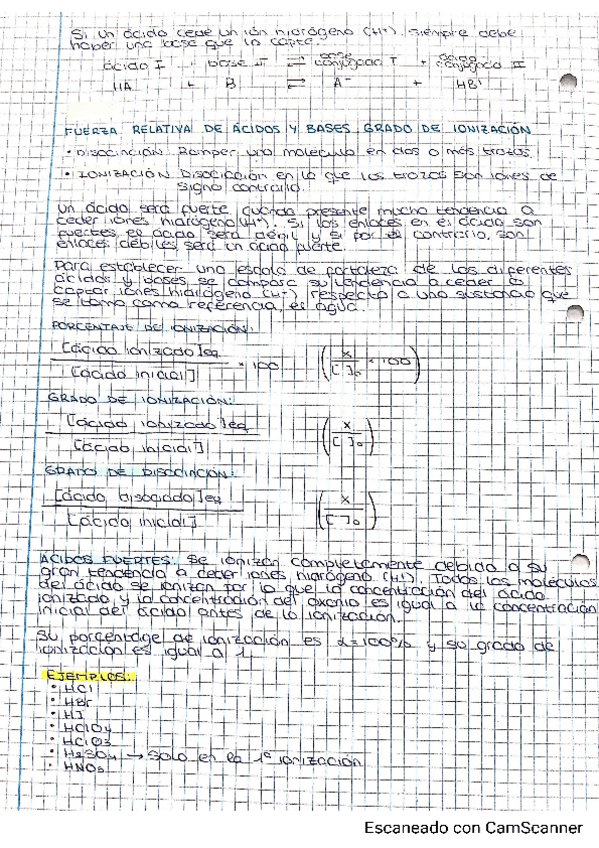 Si un ácido cede un ión hidrógeno (H+), siempre debe
haber una base que lo capte.
ácido I + base II ⇌ base conjugada I + ácido conjugado II
HA + B ⇌ A⁻ + HB⁺
FUERZA RELATIVA DE ÁCIDOS Y BASES. GRADO DE IONIZACIÓN
• DISOCIACIÓN: Romper una molécula en dos o más trozos.
• IONIZACIÓN: Disociación en la que los trozos son iones de
signo contrario.
Un ácido será fuerte cuando presente mucha tendencia a
ceder iones hidrógeno (H+). Si los enlaces en el ácido son
fuertes el ácido será débil y si por el contrario, son
enlaces débiles será un ácido fuerte.
Para establecer una escala de fortaleza de los diferentes
ácidos y bases, se compara su tendencia a ceder o
captar iones hidrógeno (H+), respecto a una sustancia que
se toma como referencia, el agua.
PORCENTAJE DE IONIZACIÓN:
[ácido ionizado]eq
[ácido inicial] · 100 (x / [ ]₀ · 100)
GRADO DE IONIZACIÓN:
[ácido ionizado]eq
[ácido inicial] (x / [ ]₀)
GRADO DE DISOCIACIÓN:
[ácido disociado]eq
[ácido inicial] (x / [ ]₀)
ÁCIDOS FUERTES: Se ionizan completamente debido a su
gran tendencia a ceder iones hidrógeno (H+). Todas las moléculas
del ácido se ionizan por lo que la concentración del ácido
ionizado y la concentración del oxonio es igual a la concentración
inicial del ácido antes de la ionización.
Su porcentage de ionización es α=100% y su grado de
ionización es igual a 1.
EJEMPLOS:
• HCl
• HBr
• HI
• HClO₄
• HClO₃
• H₂SO₄ → solo en la 1ª ionización
• HNO₃
Escaneado con CamScanner